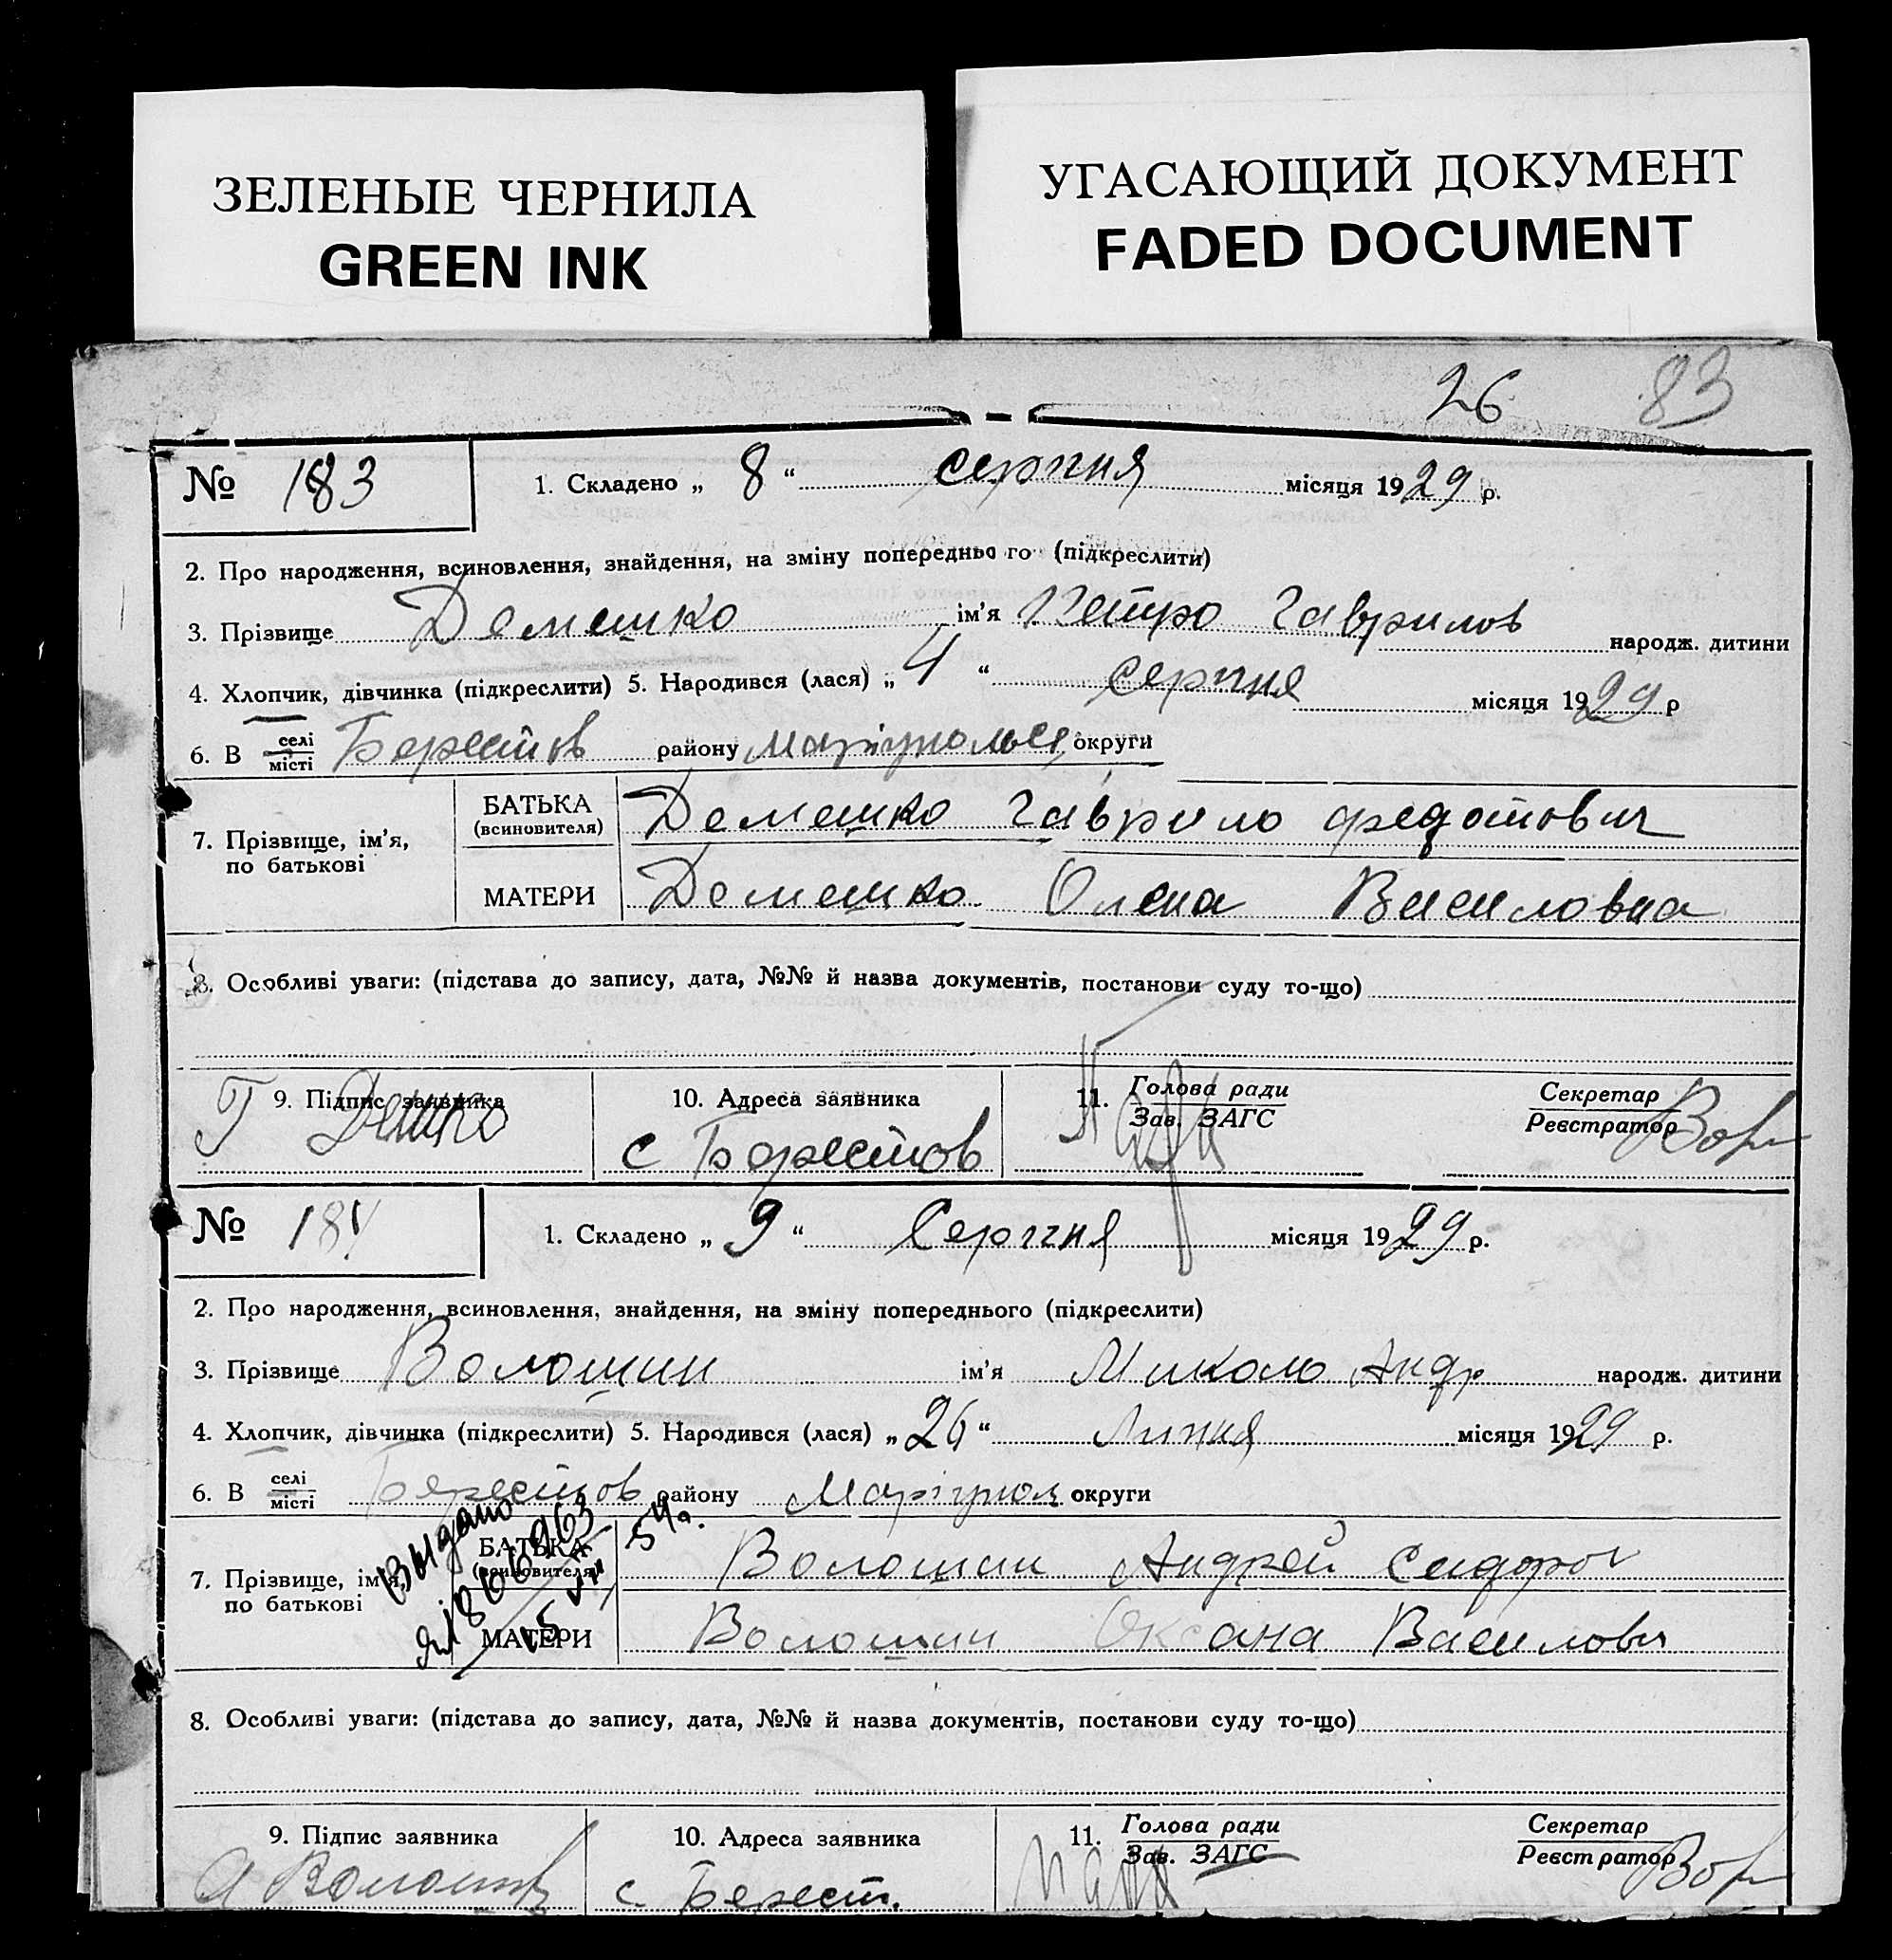 ЗЕЛЕНЫЕ ЧЕРНИЛА
GREEN INK
УГАСАЮЩИЙ ДОКУМЕНТ
FADED DOCUMENT
26 83
№ 183 1. Складено „ 8 “ серпня місяця 1929 р.
2. Про народження, всиновлення, знайдення, на зміну попереднього (підкреслити)
3. Прізвище Демешко ім'я Петро Гаврилов народж. дитини
4. Хлопчик, дівчинка (підкреслити) 5. Народився (лася) „ 4 “ серпня місяця 1929 р
6. В селі місті Берестов району Маріупольск округи
7. Прізвище, ім'я, по батькові
БАТЬКА (всиновителя) Демешко Гаврило Федотович
МАТЕРИ Демешко Олена Василовна
8. Особливі уваги: (підстава до запису, дата, №№ й назва документів, постанови суду то-що)
9. Підпис заявника 10. Адреса заявника 11. Голова ради Зав. ЗАГС Секретар Реєстратор
Г с Берестов
№ 184 1. Складено „ 9 “ Серпня місяця 1929 р.
2. Про народження, всиновлення, знайдення, на зміну попереднього (підкреслити)
3. Прізвище Волошин ім'я Миколо Андр народж. дитини
4. Хлопчик, дівчинка (підкреслити) 5. Народився (лася) „ 26 “ Липня місяця 1929 р.
6. В селі місті Берестов району Маріупол округи
Выдано
54г.
7. Прізвище, ім'я, по батькові
БАТЬКА (всиновителя) Волошин Андрей Сидоров
МАТЕРИ Волошин Оксана Василовн
8. Особливі уваги: (підстава до запису, дата, №№ й назва документів, постанови суду то-що)
9. Підпис заявника 10. Адреса заявника 11. Голова ради Зав. ЗАГС Секретар Реєстратор
А Волошин с Берест.